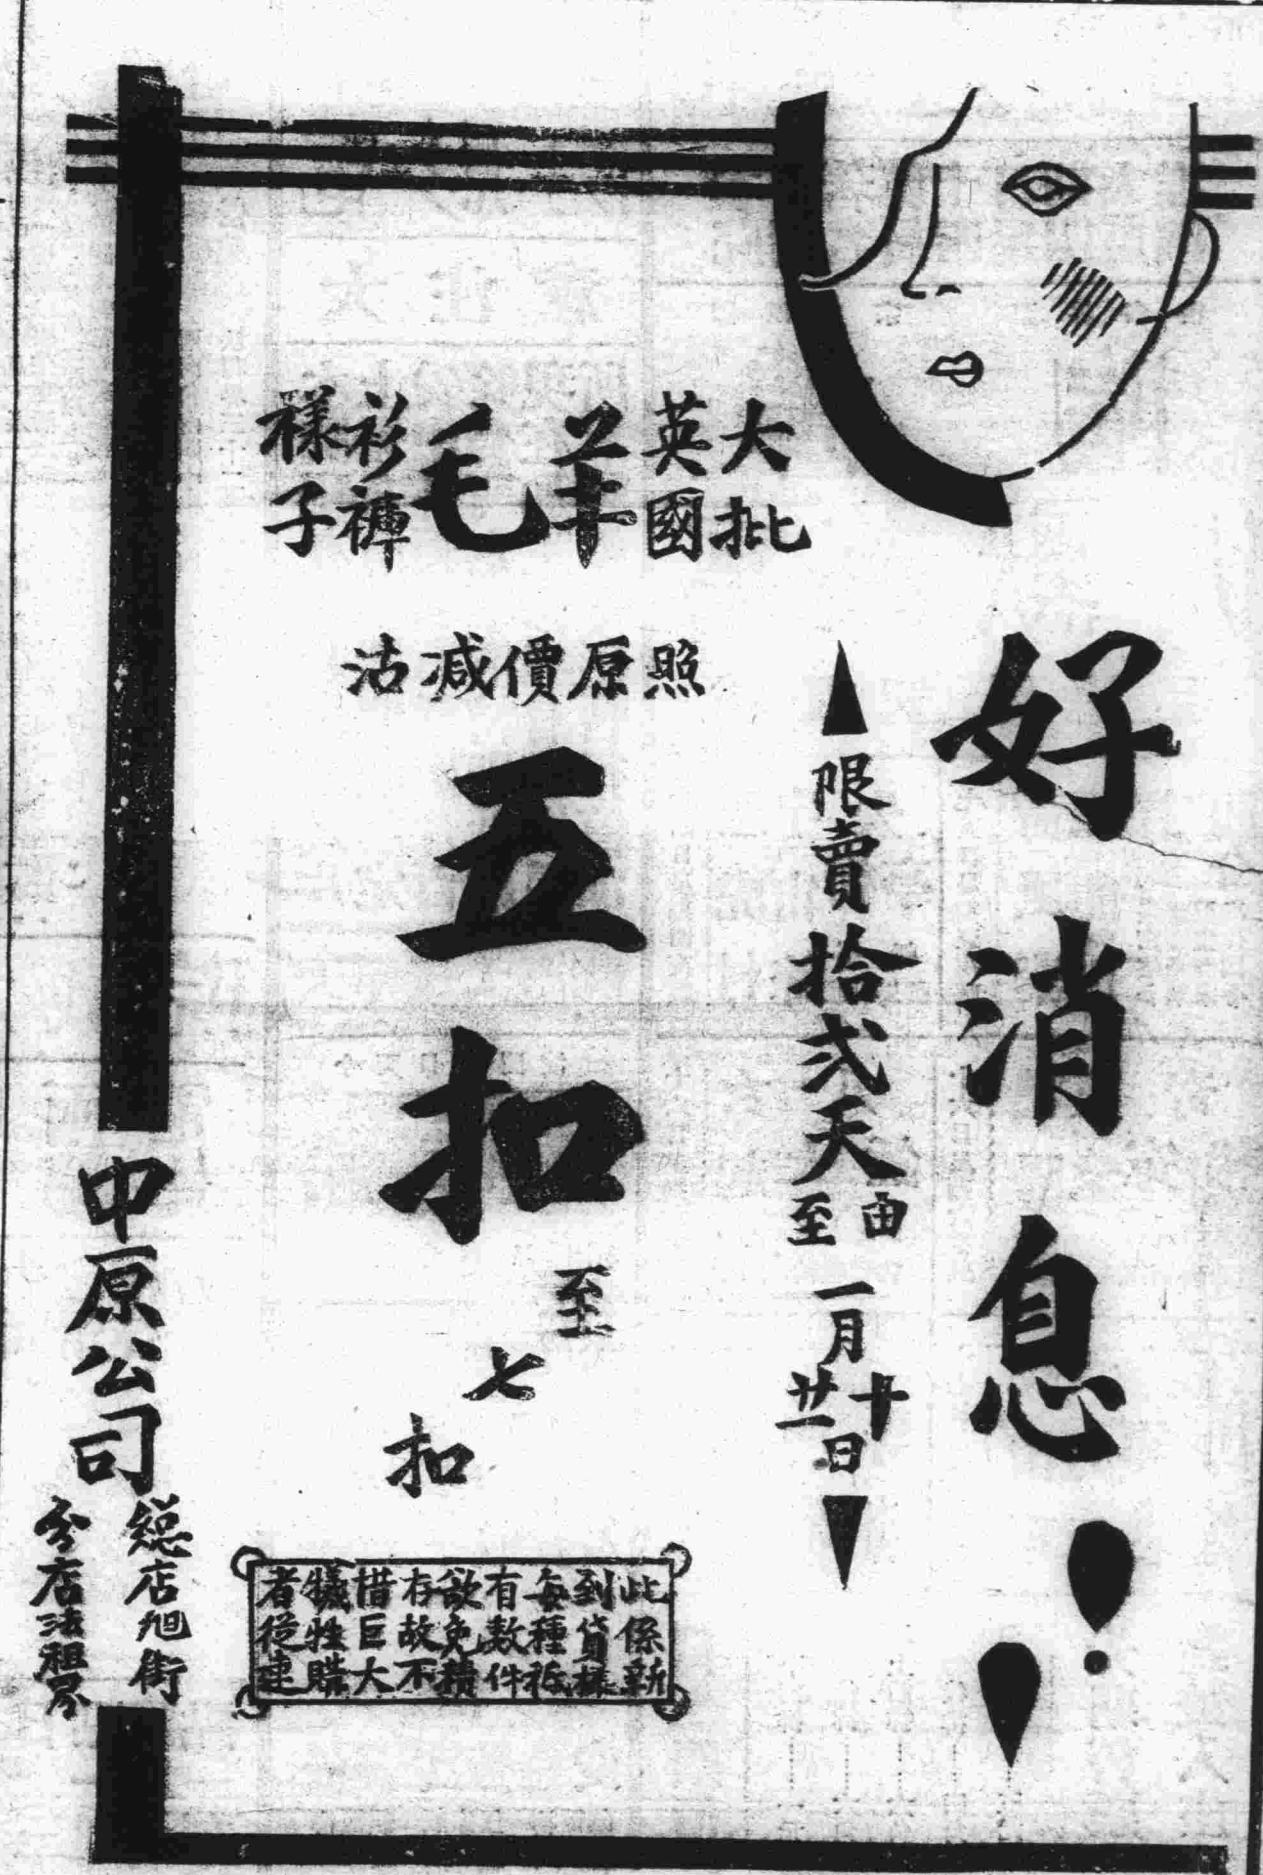 好消息!!
限賣拾弍天
由至
一月
十廿一
日
大批
英國
羊毛
衫褲
樣子
照原價减沽
五扣
至
七
扣
此係新
到貨樣
每種祇
有數件
欲免積
存故不
惜巨大
犧牲購
者從速
中原公司
總店旭街
分店法租界